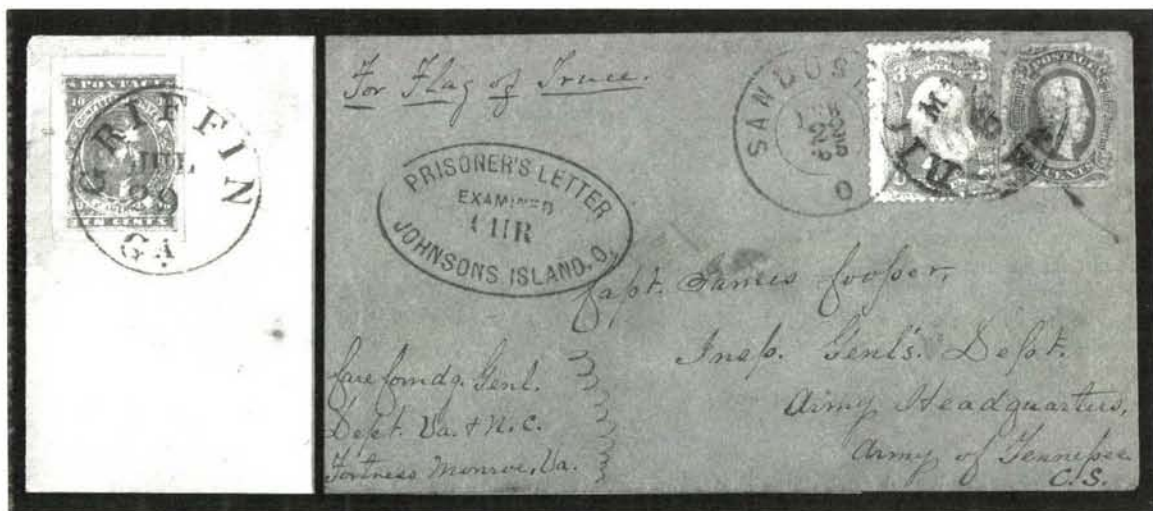 POSTAGE
10
TEN CENTS
GRIFFIN
JUL
28
GA
For Flag of Truce.
PRISONER'S LETTER
EXAMINED
JOHNSONS ISLAND, O.
SANDUS
25
O
POSTAGE
Capt. James Cooper,
Insp. Genl's. Dept.
Army Headquarters,
Army of Tennessee
C.S.
Care Comdg. Genl.
Dept. Va. & N.C.
Fortress Monroe, Va.